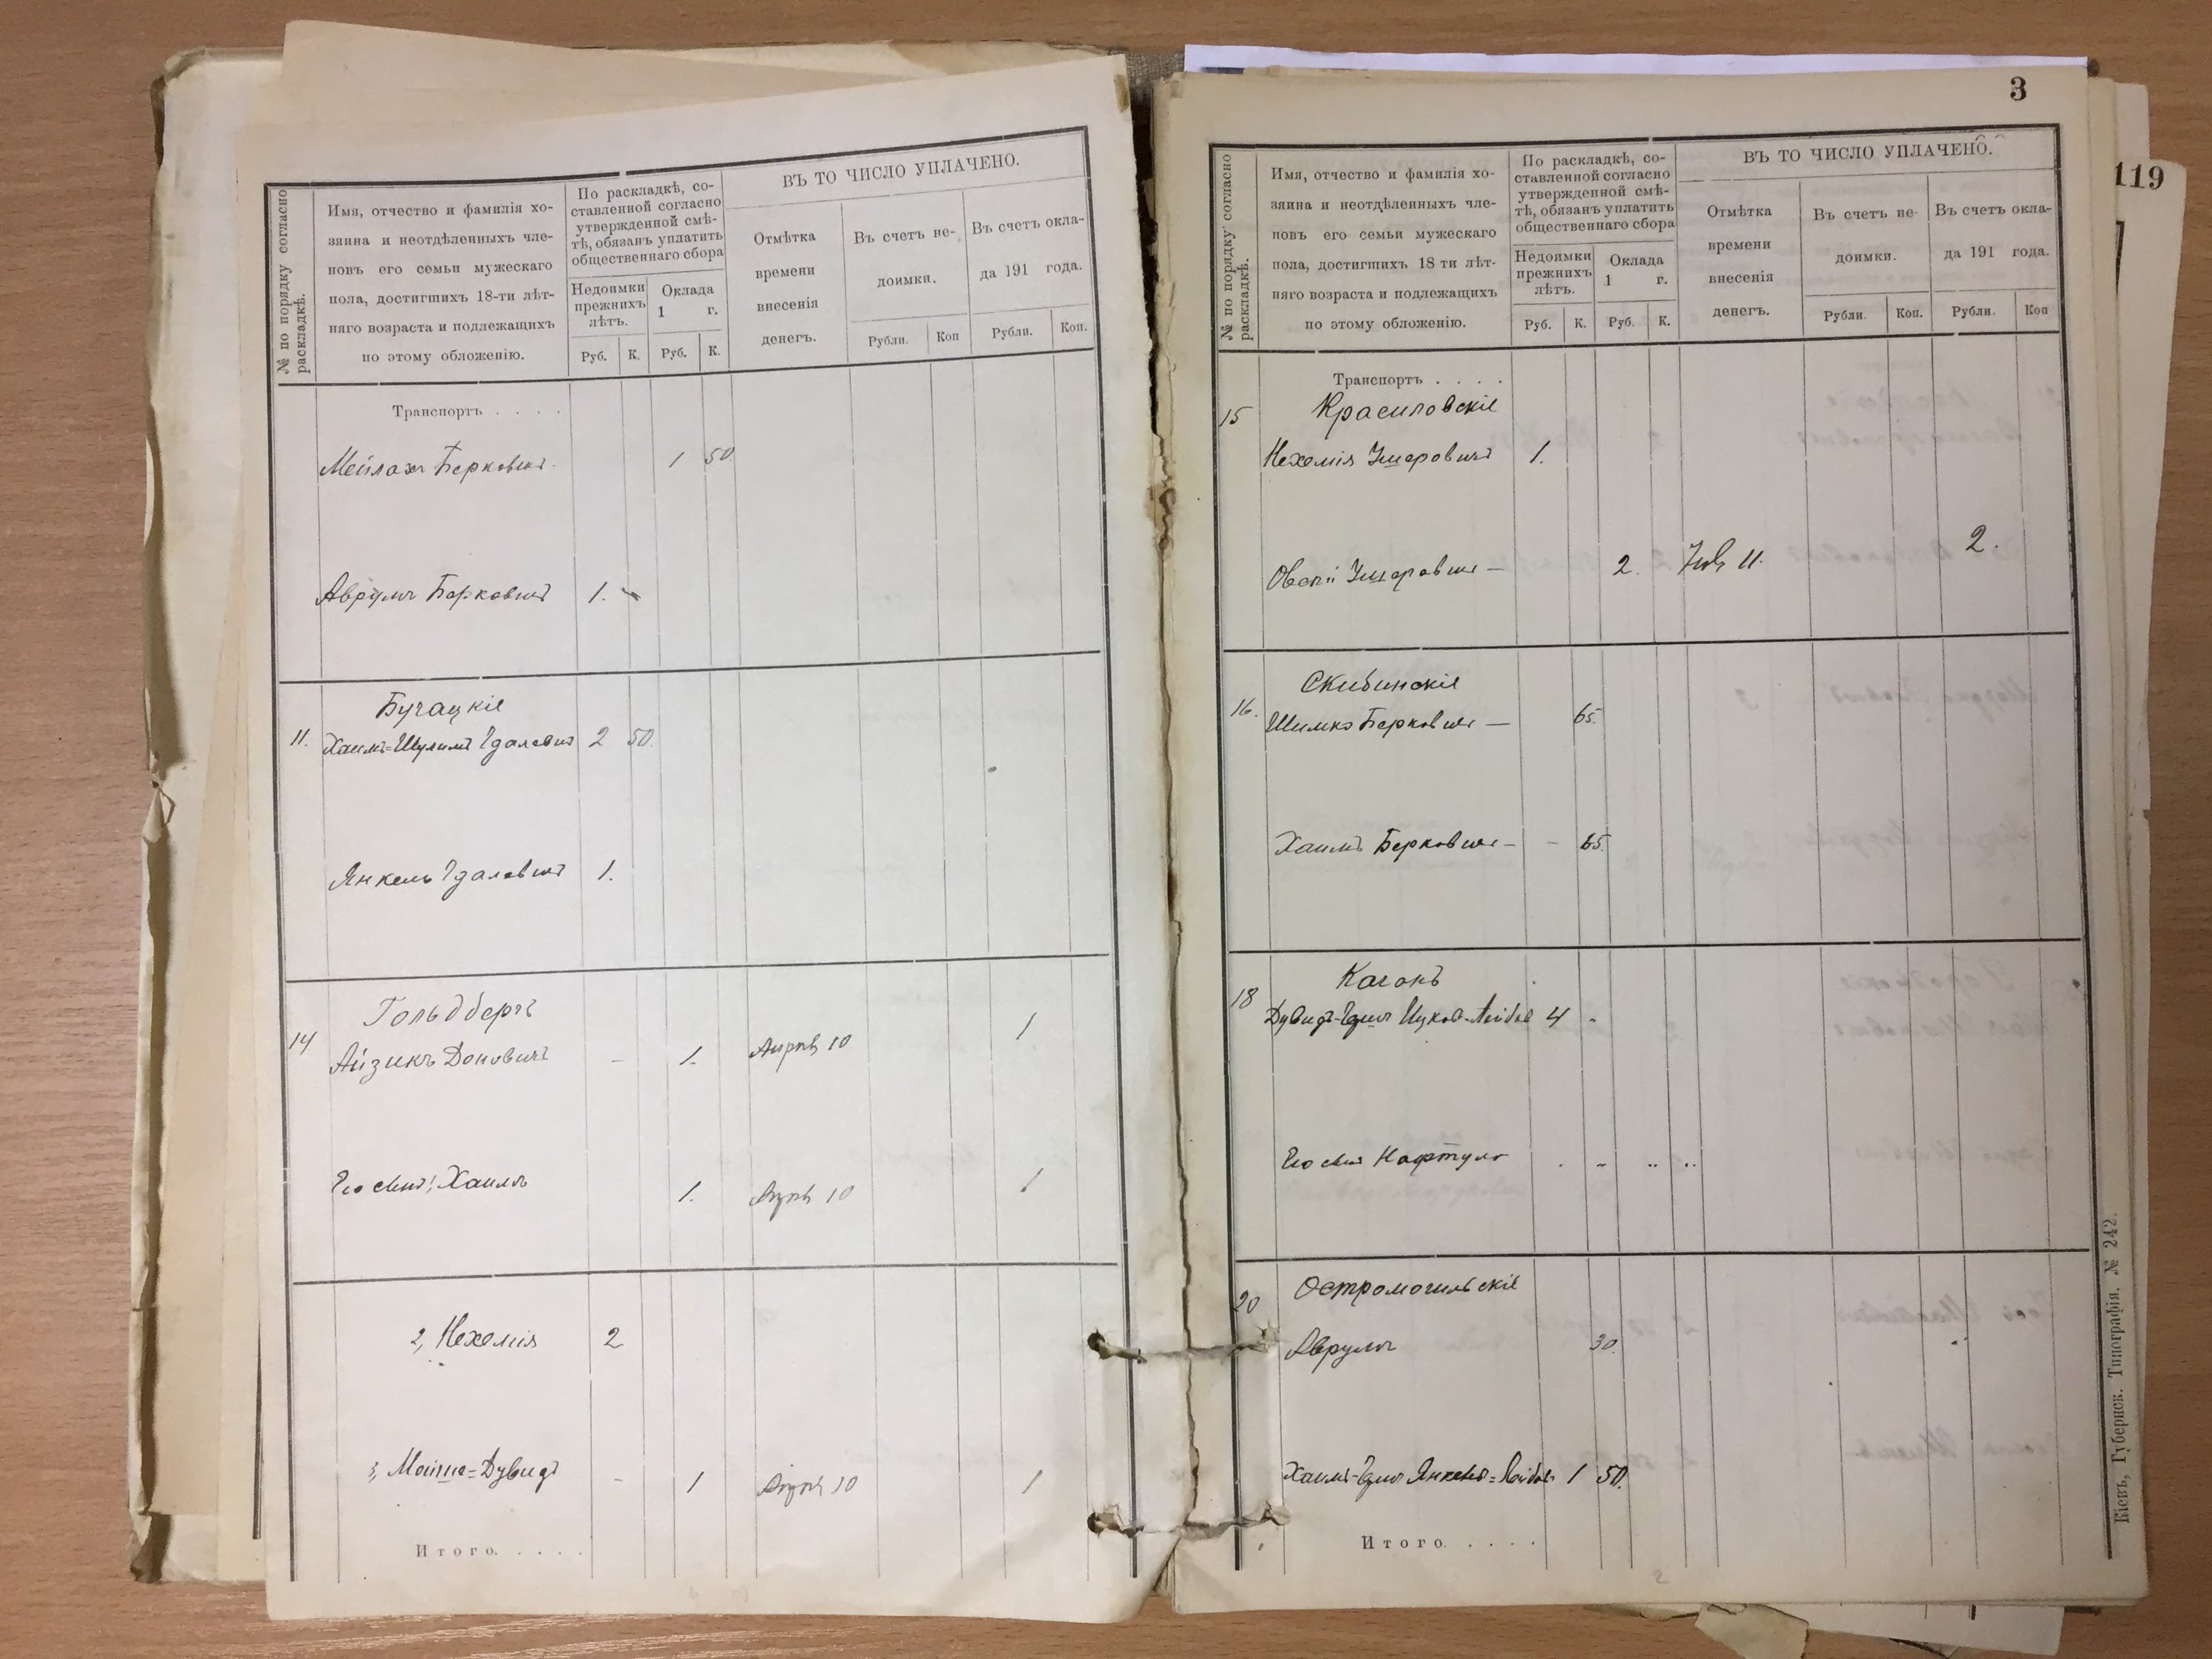 № по порядку согласно
раскладкѣ.
Имя, отчество и фамилія хо-
зяина и неотдѣленныхъ чле-
новъ его семьи мужескаго
пола, достигшихъ 18-ти лѣт-
няго возраста и подлежащихъ
по этому обложенію.
По раскладкѣ, со-
ставленной согласно
утвержденной смѣ-
тѣ, обязанъ уплатить
общественнаго сбора
Недоимки
прежнихъ
лѣтъ.
Оклада
1 г.
Руб. К. Руб. К.
ВЪ ТО ЧИСЛО УПЛАЧЕНО.
Отмѣтка
времени
внесенія
денегъ.
Въ счетъ не-
доимки.
Въ счетъ окла-
да 191 года.
Рубли. Коп Рубли. Коп.
Транспортъ . . . .
Мейлахъ Берковичъ 1 50
Аврумъ Берковичъ 1.
Бучацкіе
11. Хаимъ=Шулимъ Гдалевичъ 2 50
Янкель Гдалевичъ 1.
Гольдбергъ
14 Айзикъ Доновичъ - 1. Апрѣ 10 1
Его сын: Хаимъ 1. Апрѣ 10 1
2, Нехемія 2
3, Мойше=Дувидъ - 1 Апрѣ 10 1
Итого. . . . .
3
№ по порядку согласно
раскладкѣ.
Имя, отчество и фамилія хо-
зяина и неотдѣленныхъ чле-
новъ его семьи мужескаго
пола, достигшихъ 18 ти лѣт-
няго возраста и подлежащихъ
по этому обложенію.
По раскладкѣ, со-
ставленной согласно
утвержденной смѣ-
тѣ, обязанъ уплатить
общественнаго сбора
Недоимки
прежнихъ
лѣтъ.
Оклада
1 г.
Руб. К. Руб. К.
ВЪ ТО ЧИСЛО УПЛАЧЕНО.
Отмѣтка
времени
внесенія
денегъ.
Въ счетъ не-
доимки.
Въ счетъ окла-
да 191 года.
Рубли. Коп. Рубли. Коп
Транспортъ . . . .
15 Красиловскіе
Нехемія Умеровичъ 1.
Овсей 2. 11. 2.
Скибинскіе
16. Шимко Берковичъ — 65.
Хаимъ Берковичъ - - 65.
Каганъ
18 4 -
Его сынъ Нафтула
20 Остромогильскіе
Аврумъ 30.
1 50.
Итого. . . . .
Кіевъ, Губернск. Типографія. № 242.
119